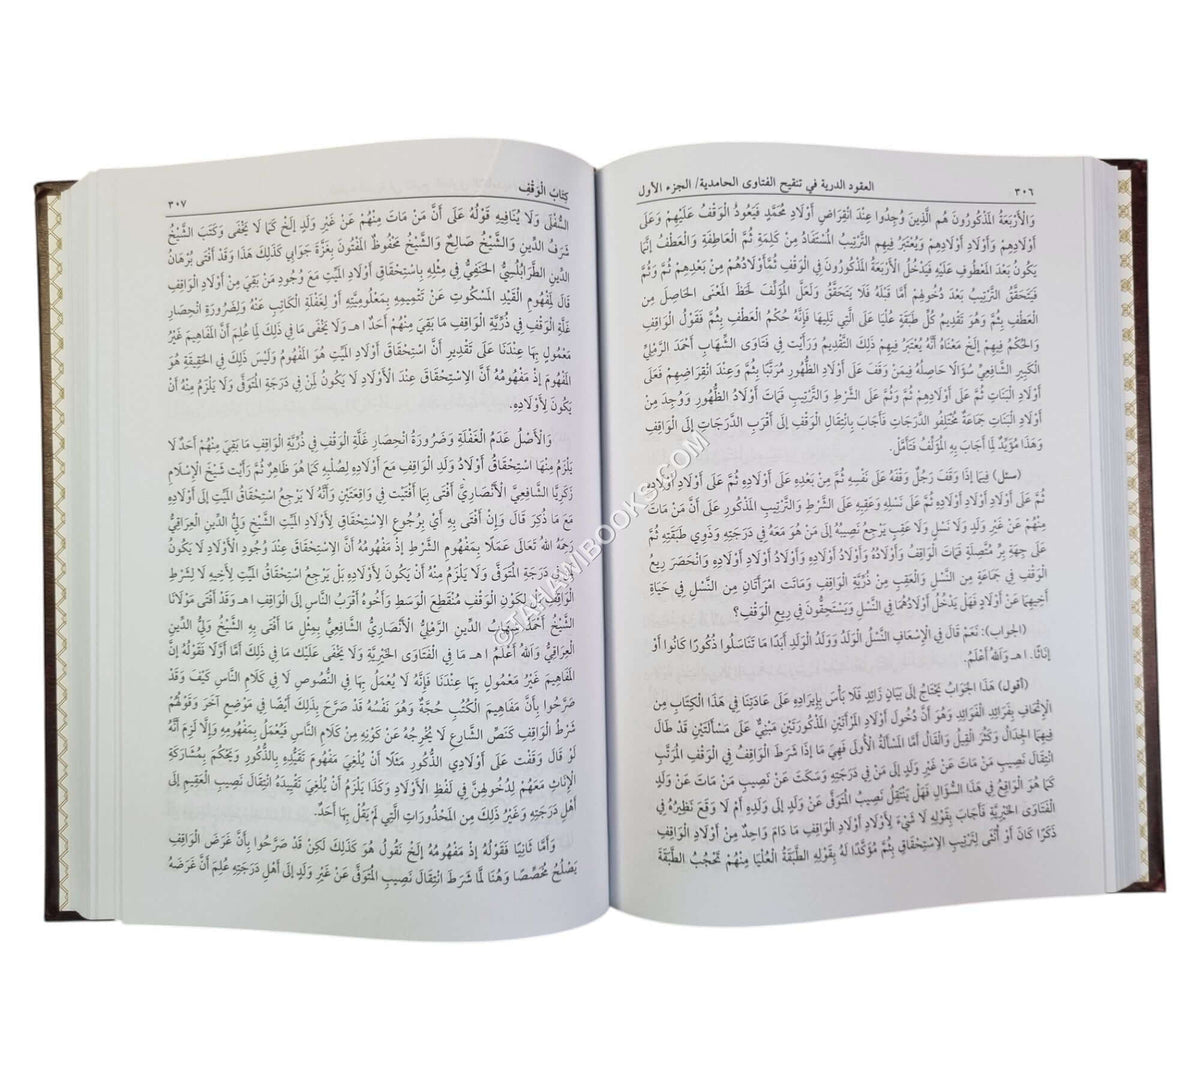 ٣٠٦ العقود الدرية في تنقيح الفتاوى الحامدية/ الجزء الأول
وَالْأَرْبَعَةُ الْمَذْكُورُونَ هُم الَّذِينَ وُجِدُوا عِنْدَ انْقِرَاضِ أَوْلَادِ مُحَمَّدٍ فَيَعُودُ الْوَقْفُ عَلَيْهِمْ وَعَلَى
أَوْلَادِهِمْ وَأَوْلَادِ أَوْلَادِهِمْ وَيُعْتَبَرُ فِيهِم التَّرْتِيبُ الْمُسْتَفَادُ مِنْ كَلِمَةِ ثُمَّ الْعَاطِفَةِ وَالْعَطْفُ إنَّمَا
يَكُونُ بَعْدَ الْمَعْطُوفِ عَلَيْهِ فَيَدْخُلُ الْأَرْبَعَةُ الْمَذْكُورُونَ فِي الْوَقْفِ ثُمَّ أَوْلَادُهُمْ مِنْ بَعْدِهِمْ ثُمَّ وَثُمَّ
فَيَتَحَقَّقُ التَّرْتِيبُ بَعْدَ دُخُولِهِمْ أَمَّا قَبْلَهُ فَلَا يَتَحَقَّقُ وَلَعَلَّ الْمُؤَلِّفَ لَحَظَ الْمَعْنَى الْحَاصِلَ مِن
الْعَطْفِ بِثُمَّ وَهُوَ تَقْدِيمُ كُلِّ طَبَقَةٍ عُلْيَا عَلَى الَّتِي تَلِيهَا فَإِنَّهُ حُكْمُ الْعَطْفِ بِثُمَّ فَقَوْلُ الْوَاقِفِ
وَالْحُكْمُ فِيهِمْ إلَخْ مَعْنَاهُ أَنَّهُ يُعْتَبَرُ فِيهِمْ ذَلِكَ التَّقْدِيمُ وَرَأَيْت فِي فَتَاوَى الشِّهَابِ أَحْمَدَ الرَّمْلِيِّ
الْكَبِيرِ الشَّافِعِيِّ سُؤَالًا حَاصِلُهُ فِيمَنْ وَقَفَ عَلَى أَوْلَادِ الظُّهُورِ مُرَتَّبًا بِثُمَّ وَعِنْدَ انْقِرَاضِهِمْ فَعَلَى
أَوْلَادِ الْبَنَاتِ ثُمَّ عَلَى أَوْلَادِهِمْ ثُمَّ وَثُمَّ عَلَى الشَّرْطِ وَالتَّرْتِيبِ فَمَاتَ أَوْلَادُ الظُّهُورِ وَوُجِدَ مِنْ
أَوْلَادِ الْبَنَاتِ جَمَاعَةٌ مُخْتَلِفُو الدَّرَجَاتِ فَأَجَابَ بِانْتِقَالِ الْوَقْفِ إلَى أَقْرَبِ الدَّرَجَاتِ إلَى الْوَاقِفِ
وَهَذَا مُؤَيِّدٌ لِمَا أَجَابَ بِهِ الْمُؤَلِّفُ فَتَأَمَّلْ.
(سئل) فِيمَا إذَا وَقَفَ رَجُلٌ وَقْفَهُ عَلَى نَفْسِهِ ثُمَّ مِنْ بَعْدِهِ عَلَى أَوْلَادِهِ ثُمَّ عَلَى أَوْلَادِ أَوْلَادِهِ
ثُمَّ عَلَى أَوْلَادِ أَوْلَادِ أَوْلَادِهِ ثُمَّ عَلَى نَسْلِهِ وَعَقِبِهِ عَلَى الشَّرْطِ وَالتَّرْتِيبِ الْمَذْكُورِ عَلَى أَنَّ مَنْ
مِنْهُمْ عَنْ غَيْرِ وَلَدٍ وَلَا نَسْلٍ وَلَا عَقِبٍ يَرْجِعُ نَصِيبُهُ إلَى مَنْ هُوَ مَعَهُ فِي دَرَجَتِهِ وَذَوِي طَبَقَتِهِ ثُمَّ
عَلَى جِهَةِ بِرٍّ مُتَّصِلَةٍ فَمَاتَ الْوَاقِفُ وَأَوْلَادُهُ وَأَوْلَادُ أَوْلَادِهِ وَأَوْلَادُ أَوْلَادِ أَوْلَادِهِ وَانْحَصَرَ رِيعُ
الْوَقْفِ فِي جَمَاعَةٍ مِن النَّسْلِ وَالْعَقِبِ مِنْ ذُرِّيَّةِ الْوَاقِفِ وَمَاتَت امْرَأَتَانِ مِن النَّسْلِ فِي حَيَاةِ
أَخِيهِمَا عَنْ أَوْلَادٍ فَهَلْ يَدْخُلُ أَوْلَادُهُمَا فِي النَّسْلِ وَيَسْتَحِقُّونَ فِي رِيعِ الْوَقْفِ؟
(الجواب): نَعَمْ قَالَ فِي الْإِسْعَافِ النَّسْلُ الْوَلَدُ وَوَلَدُ الْوَلَدِ أَبَدًا مَا تَنَاسَلُوا ذُكُورًا كَانُوا أَوْ
إنَاثًا. ا هـ وَاَللَّهُ أَعْلَمُ.
(أقول) هَذَا الْجَوَابُ يَحْتَاجُ إلَى بَيَانٍ زَائِدٍ فَلَا بَأْسَ بِإِيرَادِهِ عَلَى عَادَتِنَا فِي هَذَا الْكِتَابِ مِن
الْإِتْحَافِ بِفَرَائِدِ الْفَوَائِدِ وَهُوَ أَنَّ دُخُولَ أَوْلَادِ الْمَرْأَتَيْنِ الْمَذْكُورَتَيْنِ مَبْنِيٌّ عَلَى مَسْأَلَتَيْنِ قَدْ طَالَ
فِيهِمَا الْجِدَالُ وَكَثُرَ الْقِيلُ وَالْقَالُ أَمَّا الْمَسْأَلَةُ الْأُولَى فَهِيَ مَا إذَا شَرَطَ الْوَاقِفُ فِي الْوَقْفِ الْمُرَتَّبِ
انْتِقَالَ نَصِيبِ مَنْ مَاتَ عَنْ غَيْرِ وَلَدٍ إلَى مَنْ فِي دَرَجَتِهِ وَسَكَتَ عَنْ نَصِيبِ مَنْ مَاتَ عَنْ وَلَدٍ
كَمَا هُوَ الْوَاقِعُ فِي هَذَا السُّؤَالِ فَهَلْ يَنْتَقِلُ نَصِيبُ الْمُتَوَفَّى عَنْ وَلَدٍ إلَى وَلَدِهِ أَمْ لَا وَقَعَ نَظِيرُهُ فِي
الْفَتَاوَى الْخَيْرِيَّةِ فَأَجَابَ بِقَوْلِهِ لَا شَيْءَ لِأَوْلَادِ أَوْلَادِ الْوَاقِفِ مَا دَامَ وَاحِدٌ مِنْ أَوْلَادِ الْوَاقِفِ
ذَكَرًا كَانَ أَوْ أُنْثَى لِتَرْتِيبِ الِاسْتِحْقَاقِ بِثُمَّ مُؤَكِّدًا لَهُ بِقَوْلِهِ الطَّبَقَةُ الْعُلْيَا مِنْهُمْ تَحْجُبُ الطَّبَقَةَ
كِتَابُ الْوَقْفِ ٣٠٧
السُّفْلَى وَلَا يُنَافِيهِ قَوْلُهُ عَلَى أَنَّ مَنْ مَاتَ مِنْهُمْ عَنْ غَيْرِ وَلَدٍ إلَخْ كَمَا لَا يَخْفَى وَكَتَبَ الشَّيْخُ
شَرَفُ الدِّينِ وَالشَّيْخُ صَالِحٌ وَالشَّيْخُ مَحْفُوظٌ الْمُفْتُونَ بِغَزَّةَ جَوَابِي كَذَلِكَ هَذَا وَقَدْ أَفْتَى بُرْهَانُ
الدِّينِ الطَّرَابُلُسِيُّ الْحَنَفِيُّ فِي مِثْلِهِ بِاسْتِحْقَاقِ أَوْلَادِ الْمَيِّتِ مَعَ وُجُودِ مَنْ بَقِيَ مِنْ أَوْلَادِ الْوَاقِفِ
قَالَ لِمَفْهُومِ الْقَيْدِ الْمَسْكُوتِ عَنْ تَتْمِيمِهِ بِمَعْلُومِيَّتِهِ أَوْ لِغَفْلَةِ الْكَاتِبِ عَنْهُ وَلِضَرُورَةِ انْحِصَارِ
غَلَّةِ الْوَقْفِ فِي ذُرِّيَّةِ الْوَاقِفِ مَا بَقِيَ مِنْهُمْ أَحَدٌ ا هـ وَلَا يَخْفَى مَا فِي ذَلِكَ لِمَا عُلِمَ أَنَّ الْمَفَاهِيمَ غَيْرُ
مَعْمُولٍ بِهَا عِنْدَنَا عَلَى تَقْدِيرِ أَنَّ اسْتِحْقَاقَ أَوْلَادِ الْمَيِّتِ هُوَ الْمَفْهُومُ وَلَيْسَ ذَلِكَ فِي الْحَقِيقَةِ هُوَ
الْمَفْهُومَ إذْ مَفْهُومُهُ أَنَّ الِاسْتِحْقَاقَ عِنْدَ الْأَوْلَادِ لَا يَكُونُ لِمَنْ فِي دَرَجَةِ الْمُتَوَفَّى وَلَا يَلْزَمُ مِنْهُ أَنْ
يَكُونَ لِأَوْلَادِهِ.
وَالْأَصْلُ عَدَمُ الْغَفْلَةِ وَضَرُورَةُ انْحِصَارِ غَلَّةِ الْوَقْفِ فِي ذُرِّيَّةِ الْوَاقِفِ مَا بَقِيَ مِنْهُمْ أَحَدٌ لَا
يَلْزَمُ مِنْهَا اسْتِحْقَاقُ أَوْلَادُ وَلَدِ الْوَاقِفِ مَعَ أَوْلَادِهِ لِصُلْبِهِ كَمَا هُوَ ظَاهِرٌ ثُمَّ رَأَيْت شَيْخَ الْإِسْلَامِ
زَكَرِيَّا الشَّافِعِيَّ الْأَنْصَارِيَّ أَفْتَى بِمَا أَفْتَيْت فِي وَاقِعَتَيْنِ وَأَنَّهُ لَا يَرْجِعُ اسْتِحْقَاقُ الْمَيِّتِ إلَى أَوْلَادِهِ
مَعَ مَا ذُكِرَ قَالَ وَإِنْ أَفْتَى بِهِ أَيْ بِرُجُوعِ الِاسْتِحْقَاقِ لِأَوْلَادِ الْمَيِّتِ الشَّيْخُ وَلِيُّ الدِّينِ الْعِرَاقِيُّ
رَحِمَهُ اللهُ تَعَالَى عَمَلًا بِمَفْهُومِ الشَّرْطِ إذْ مَفْهُومُهُ أَنَّ الِاسْتِحْقَاقَ عِنْدَ وُجُودِ الْأَوْلَادِ لَا يَكُونُ
لِمَنْ فِي دَرَجَةِ الْمُتَوَفَّى وَلَا يَلْزَمُ مِنْهُ أَنْ يَكُونَ لِأَوْلَادِهِ بَلْ يَرْجِعُ اسْتِحْقَاقُ الْمَيِّتِ لِأَخِيهِ لَا لِشَرْطِ
الْوَاقِفِ بَلْ لِكَوْنِ الْوَقْفِ مُنْقَطِعَ الْوَسَطِ وَأَخُوهُ أَقْرَبُ النَّاسِ إلَى الْوَاقِفِ ا هـ وَقَدْ أَفْتَى مَوْلَانَا
الشَّيْخُ أَحْمَدُ شِهَابُ الدِّينِ الرَّمْلِيُّ الْأَنْصَارِيُّ الشَّافِعِيُّ بِمِثْلِ مَا أَفْتَى بِهِ الشَّيْخُ وَلِيُّ الدِّينِ
الْعِرَاقِيُّ وَاَللَّهُ أَعْلَمُ ا هـ مَا فِي الْفَتَاوَى الْخَيْرِيَّةِ وَلَا يَخْفَى عَلَيْك مَا فِي ذَلِكَ أَمَّا أَوَّلًا فَقَوْلُهُ إنَّ
الْمَفَاهِيمَ غَيْرُ مَعْمُولٍ بِهَا عِنْدَنَا فَإِنَّهُ لَا يُعْمَلُ بِهَا فِي النُّصُوصِ لَا فِي كَلَامِ النَّاسِ كَيْفَ وَقَدْ
صَرَّحُوا بِأَنَّ مَفَاهِيمَ الْكُتُبِ حُجَّةٌ وَهُوَ نَفْسُهُ قَدْ صَرَّحَ بِذَلِكَ أَيْضًا فِي مَوْضِعٍ آخَرَ وَقَوْلُهُمْ
شَرْطُ الْوَاقِفِ كَنَصِّ الشَّارِعِ لَا يُخْرِجُهُ عَنْ كَوْنِهِ مِنْ كَلَامِ النَّاسِ فَيُعْمَلُ بِمَفْهُومِهِ وَإِلَّا لَزِمَ أَنَّهُ
لَوْ قَالَ وَقَفْت عَلَى أَوْلَادِي الذُّكُورِ مَثَلًا أَنْ يُلْغِيَ مَفْهُومَ تَقْيِيدِهِ بِالذُّكُورِ وَيَحْكُمَ بِمُشَارَكَةِ
الْإِنَاثِ مَعَهُمْ لِدُخُولِهِنَّ فِي لَفْظِ الْأَوْلَادِ وَكَذَا يَلْزَمُ أَنْ يُلْغِيَ تَقْيِيدَهُ انْتِقَالَ نَصِيبِ الْعَقِيمِ إلَى
أَهْلِ دَرَجَتِهِ وَغَيْرُ ذَلِكَ مِن الْمَحْذُورَاتِ الَّتِي لَمْ يَقُلْ بِهَا أَحَدٌ.
وَأَمَّا ثَانِيًا فَقَوْلُهُ إذْ مَفْهُومُهُ إلَخْ نَقُولُ هُوَ كَذَلِكَ لَكِنْ قَدْ صَرَّحُوا بِأَنَّ غَرَضَ الْوَاقِفِ
يَصْلُحُ مُخَصِّصًا وَهُنَا لَمَّا شَرَطَ انْتِقَالَ نَصِيبِ الْمُتَوَفَّى عَنْ غَيْرِ وَلَدٍ إلَى أَهْلِ دَرَجَتِهِ عُلِمَ أَنَّ غَرَضَهُ